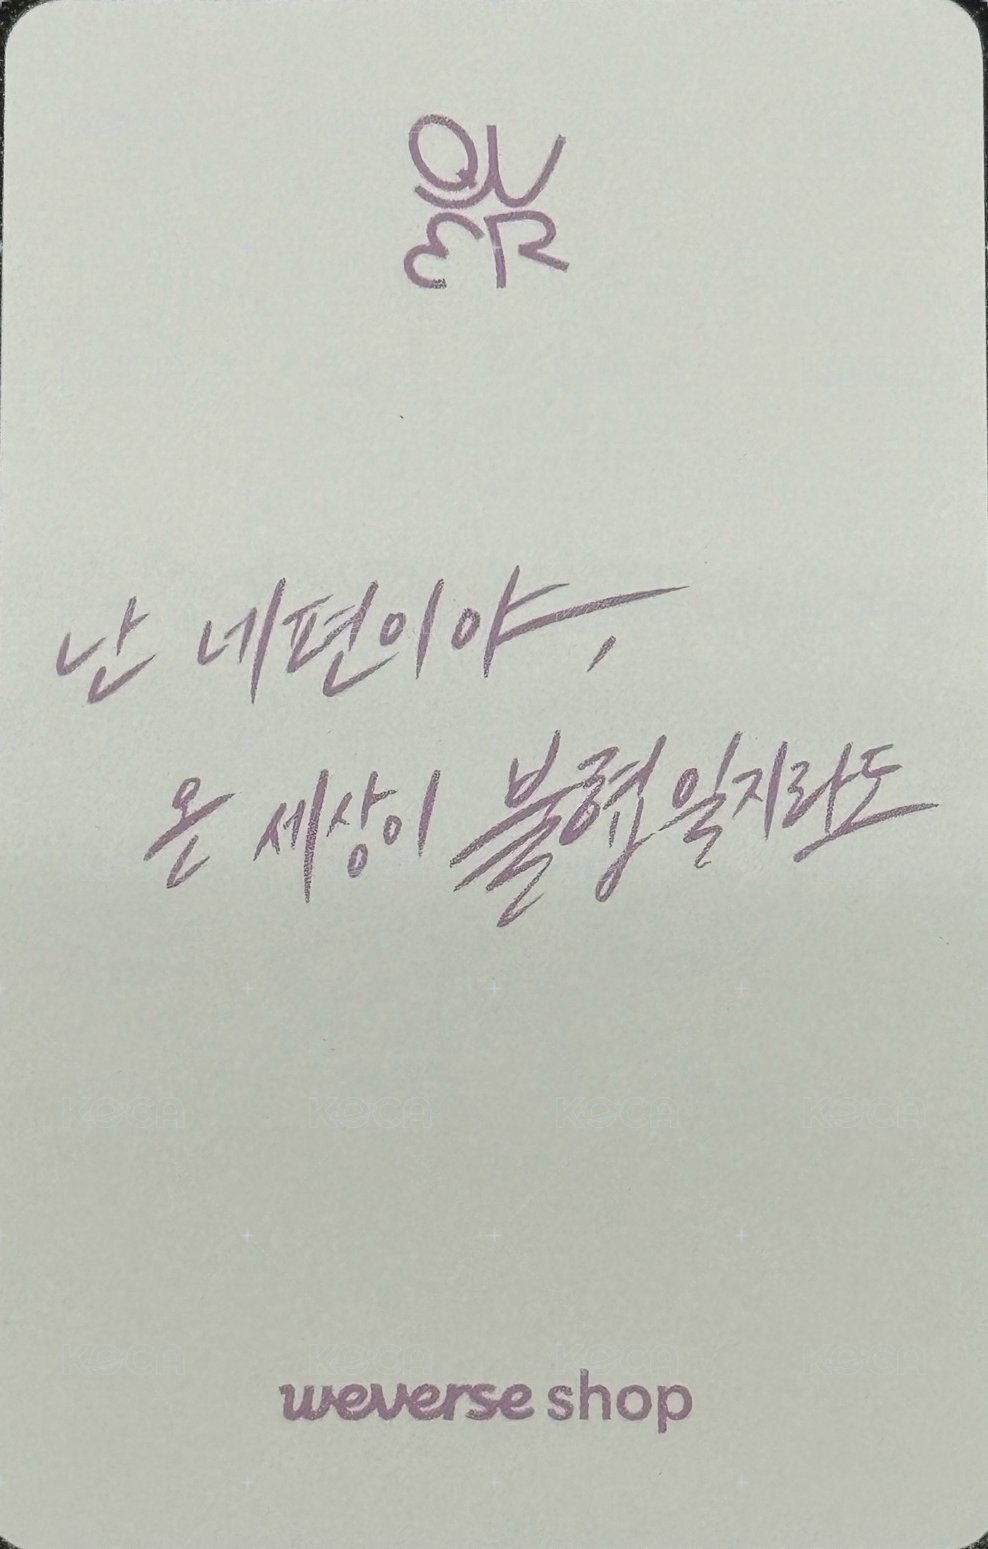 QW
ER
난 네편이야,
온 세상이 불협일지라도
KOCA KOCA KOCA KOCA
KOCA KOCA KOCA KOCA
weverse shop